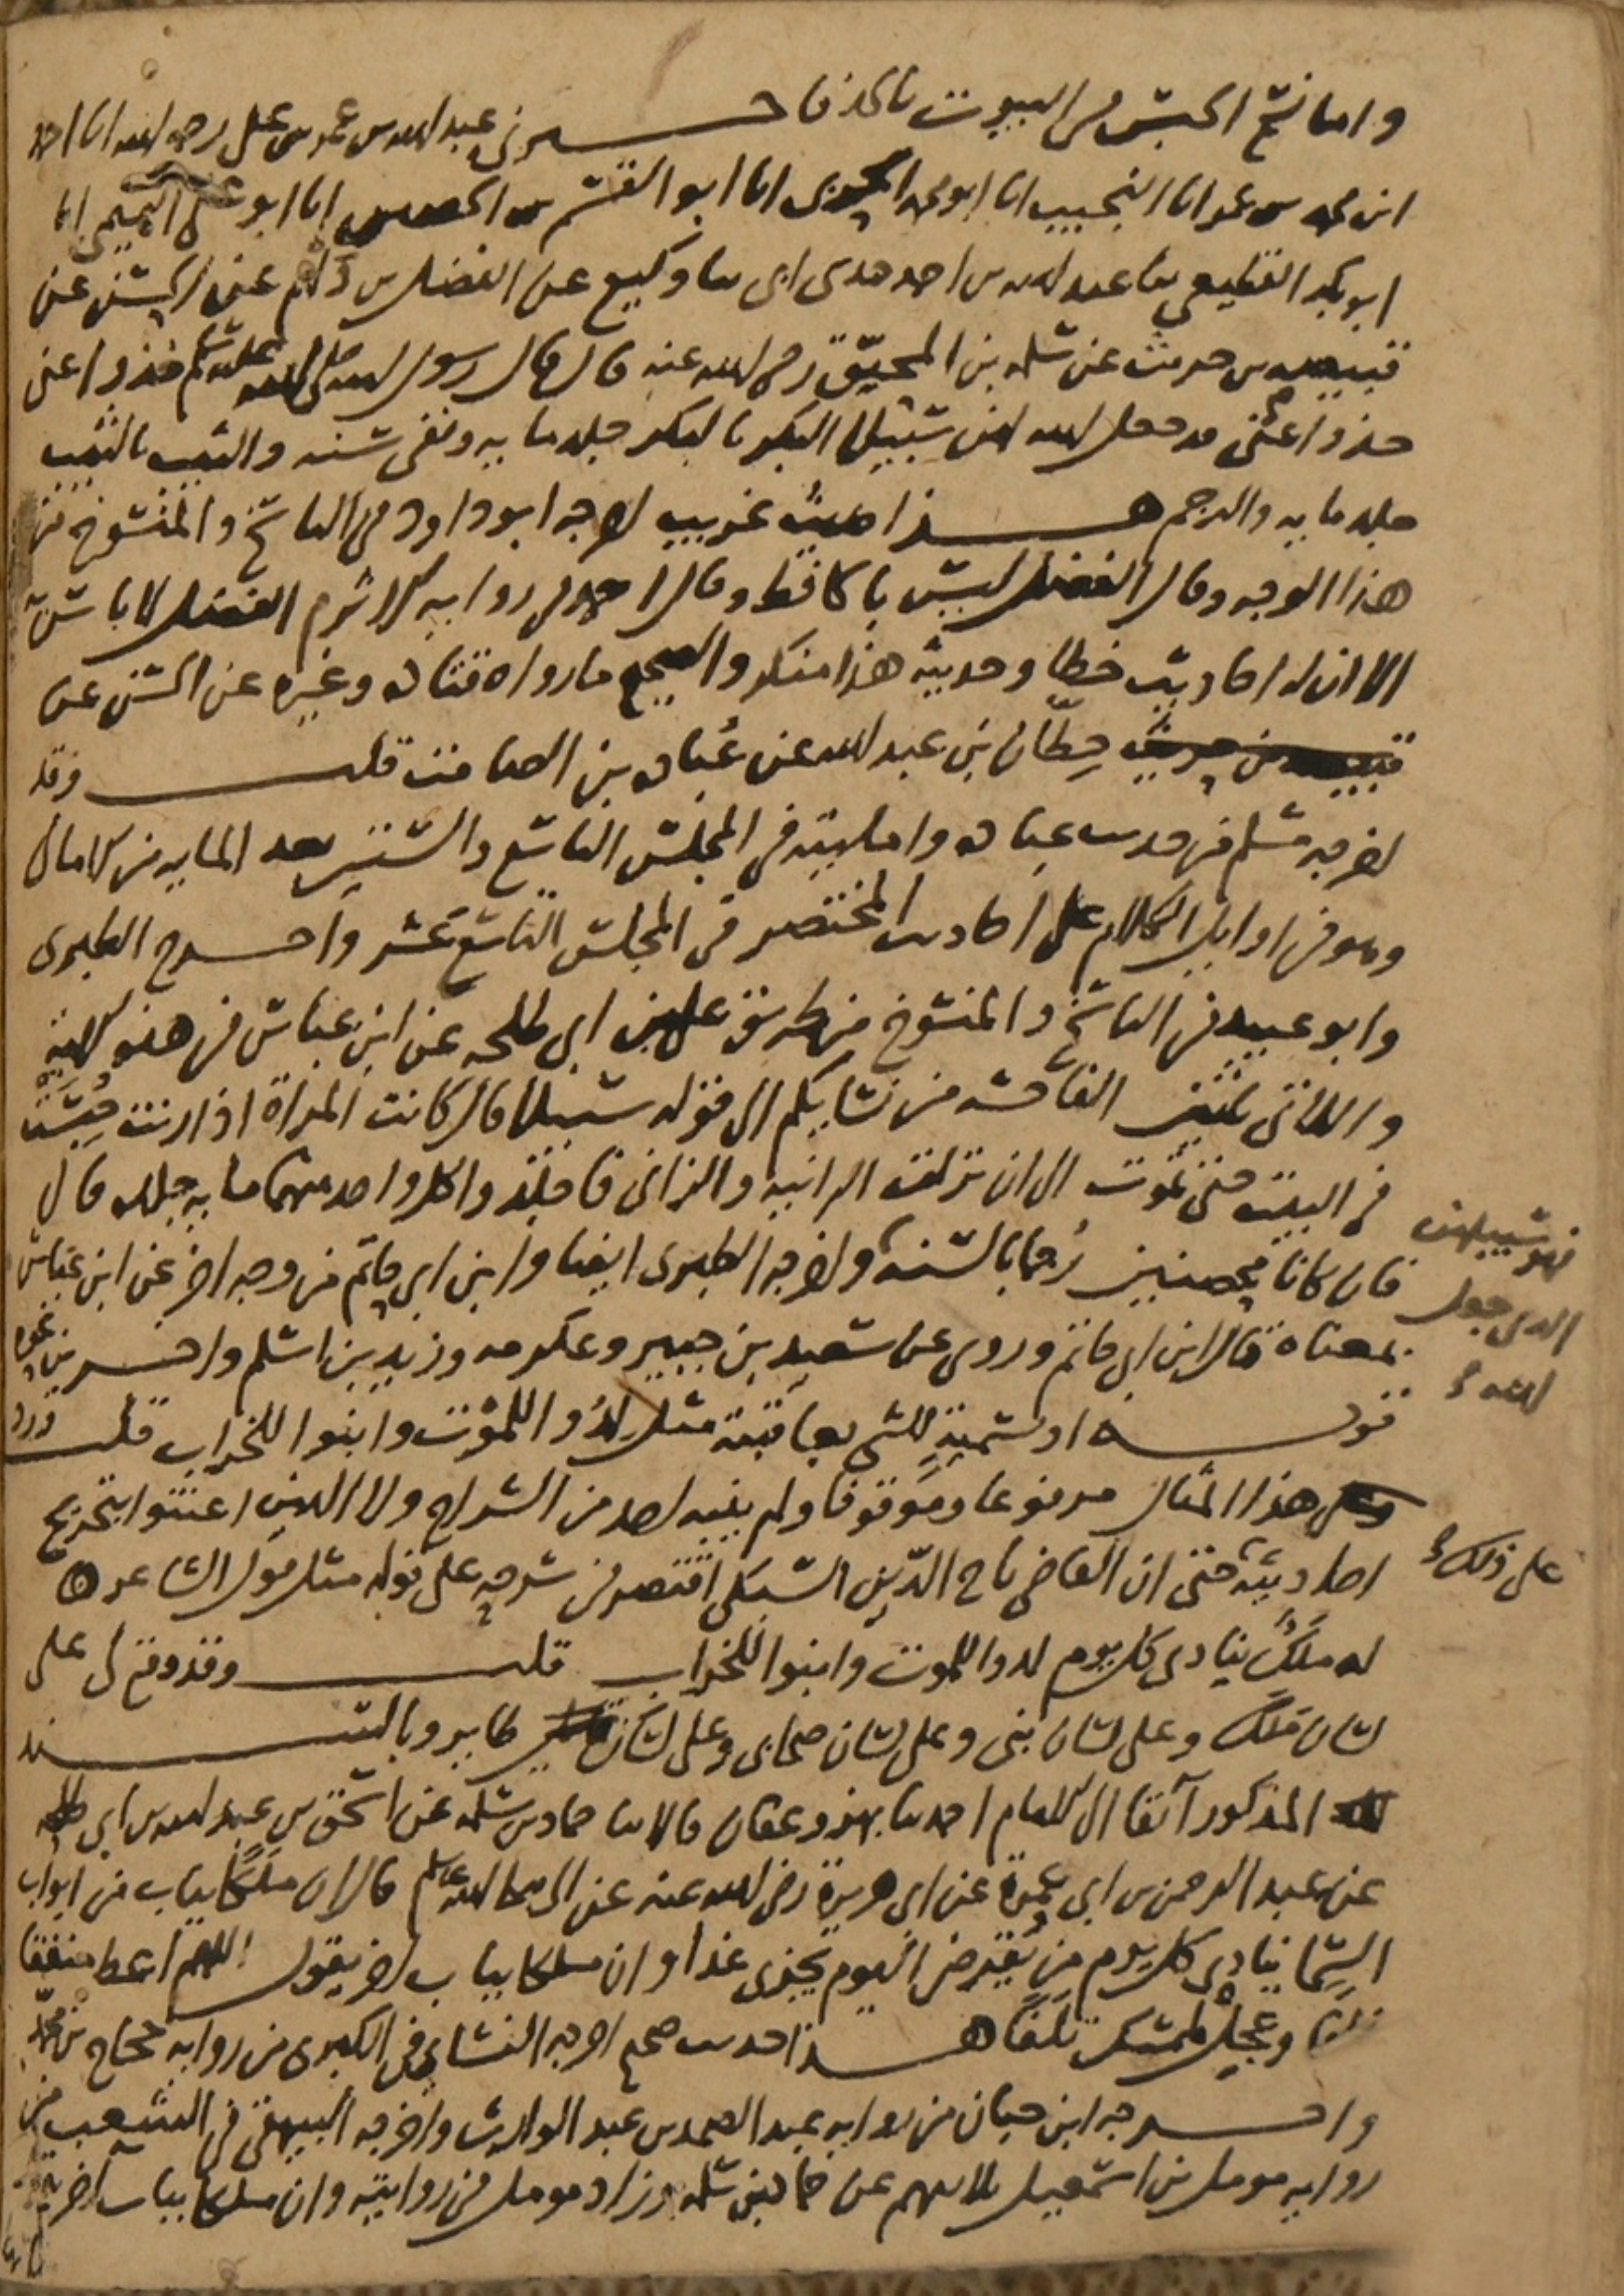 واما نسخ الحبس في البيوت فاخبرني عبد الله بن عمر بن علي رحمه الله انا احمد
ابن محمد بن عمر انا النجيب انا ابو محمد الحربي انا ابو القسم بن الحصين انا ابو علي التميمي انا
ابو بكر القطيعي ثنا عبد الله بن احمد حدثني ابي ثنا وكيع عن الفضل بن دلهم عن الحسن عن
قبيصه بن حريث عن سلمه بن المحبّق رضي الله عنه قال قال رسول الله صلى الله عليه وسلم خذوا عني
خذوا عني قد جعل الله لهن سبيلا البكر بالبكر جلد مايه ونفي سنه والثيب بالثيب
جلد مايه والرجم هذا حديث غريب اخرجه ابو داود في الناسخ والمنسوخ من
هذا الوجه وقال الفضل ليس بالحافظ وقال احمد في روايه الاثرم الفضل لا باس به
الا ان له احاديث خطا وحديثه هذا منكر والصحيح ما رواه قتاده وغيره عن الحسن عن
حِطّان بن عبد الله عن عُباده بن الصامت قلت وقد
اخرجه مسلم من حديث عباده وامليته في المجلس التاسع والستين بعد المايه من الامالي
وهو في اوايل الكلام على احاديث المختصر في المجلس التاسع عشر واخرج الطبري
وابو عبيد في الناسخ والمنسوخ من طريق علي بن ابي طلحه عن ابن عباس في هذه الاية
واللاتي ياتين الفاحشه من نسايكم الى قوله سبيلا قال كانت المراة اذا زنت حبست
في البيت حتى تموت الى ان نزلت الزانيه والزاني فاجلدوا كل واحد منهما مايه جلده قال
فان كانا محصنين رُجما بالسنه واخرجه الطبري ايضا وابن ابي حاتم من وجه اخر عن ابن عباس
فهو سبيلهن
الذي جعل
الله
بمعناه قال ابن ابي حاتم وروي عن سعيد بن جبير وعكرمه وزيد بن اسلم واخرين نحوه
قوله او تسمية الشي بعاقبته مثل لدُوا للموت وابنوا للخراب قلت ورد
هذا المثال مرفوعا وموقوفا ولم ينبه احد من الشراح ولا الذين اعتنوا بتخريج
على ذلك
احاديثه حتى ان القاضي تاج الدّين السبكي اقتصر في شرحه على قوله مثل قول الشاعر
له ملَكٌ ينادي كل يوم لدوا للموت وابنوا للخراب قلت وقد وقع لي على
لسان ملك وعلى لسان نبي وعلى لسان صحابي وعلى لسان طاير وبالسند
المذكور آنفا الى الامام احمد ثنا بهز وعفان قالا ثنا حماد بن سلمه عن اسحق بن عبد الله بن ابي طلحه
عن عبد الرحمن بن ابي عمرة عن ابي هريرة رضي الله عنه عن النبي صلى الله عليه وسلم قال ان ملكًا بباب من ابواب
السما ينادي كل يوم من يُقرض اليوم يجزى غدا وان ملكا بباب اخر يقول اللهم اعط منفقا
خلفا وعجل لممسك تلفًا هذا حديث صحيح اخرجه النسائي في الكبرى من روايه حجاج بن محمد
واخرجه ابن حبان من روايه عبد الصمد بن عبد الوارث واخرجه البيهقي في الشعب من
روايه مومل بن اسمعيل ثلاثتهم عن حماد بن سلمه وزاد مومل في روايته وان ملكا بباب آخر